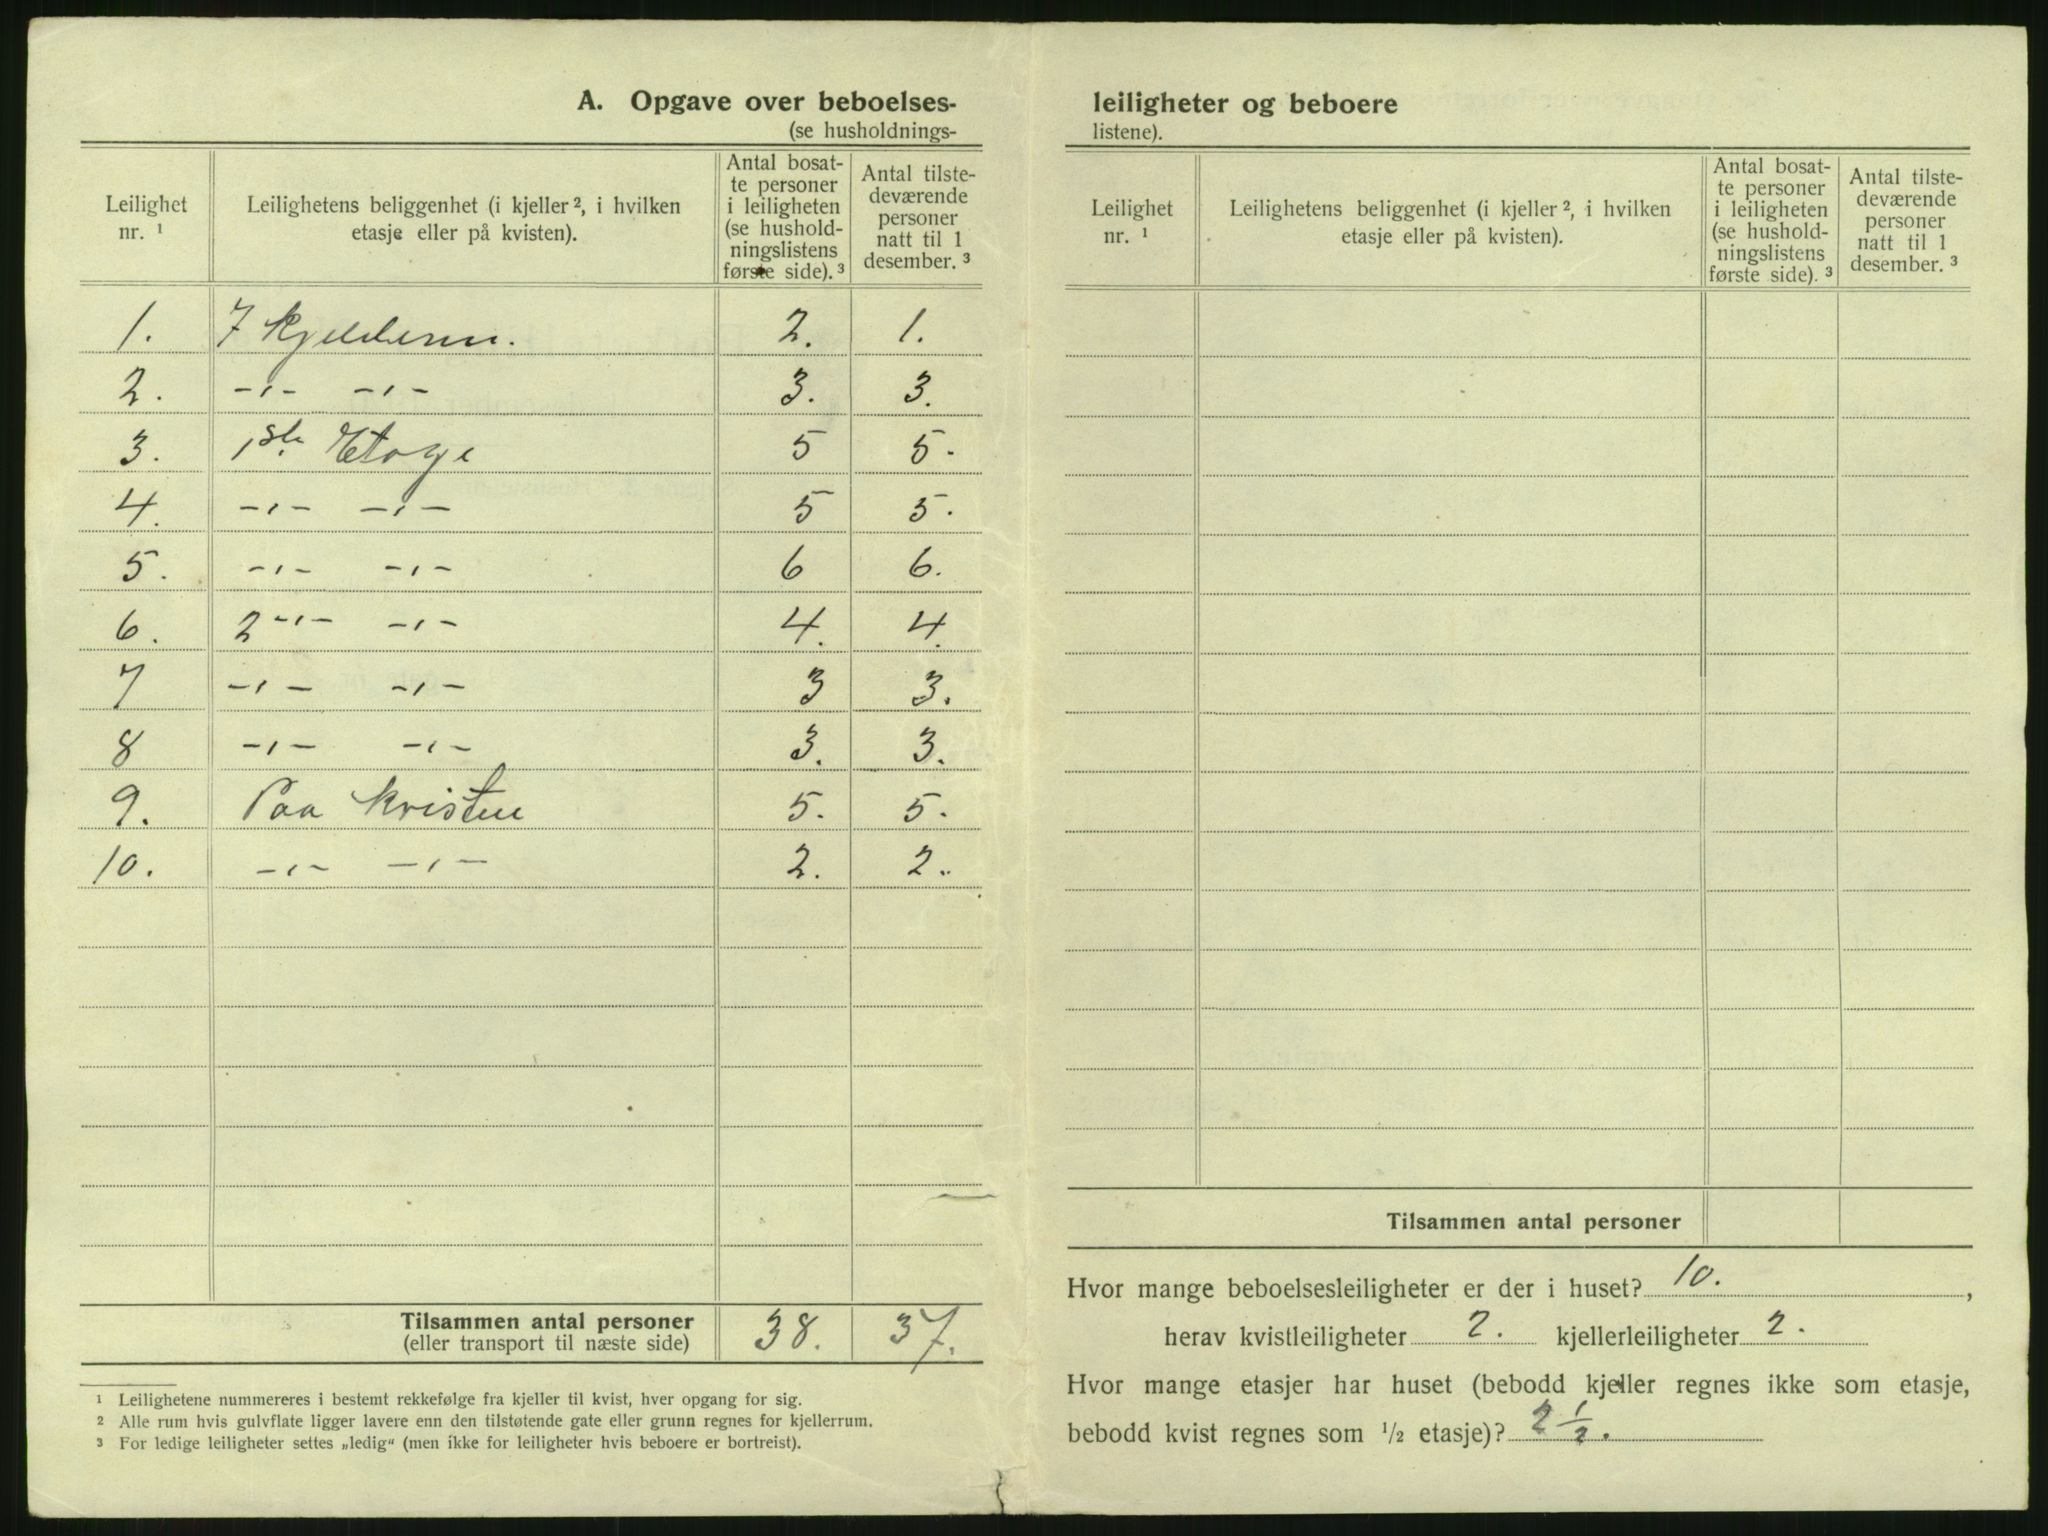 A. Opgave over beboelses-
(se husholdnings-
Leilighet nr. ¹
Leilighetens beliggenhet (i kjeller ², i hvilken etasje eller på kvisten).
Antal bosat-
te personer
i leiligheten
(se hushold-
ningslistens
første side). ³
Antal tilste-
deværende
personer
natt til 1
desember. ³
1. I kjelderen. 2. 1.
2. -"- -"- 3. 3.
3. 1ste Etage 5 5.
4. -"- -"- 5 5.
5. -"- -"- 6 6.
6. 2-"- -"- 4. 4.
7 -"- -"- 3 3.
8 -"- -"- 3. 3.
9. Paa kvisten 5. 5.
10. -"- -"- 2. 2.
Tilsammen antal personer 38. 37.
(eller transport til næste side)
¹ Leilighetene nummereres i bestemt rekkefølge fra kjeller til kvist, hver opgang for sig.
² Alle rum hvis gulvflate ligger lavere enn den tilstøtende gate eller grunn regnes for kjellerrum.
³ For ledige leiligheter settes „ledig" (men ikke for leiligheter hvis beboere er bortreist).
leiligheter og beboere
listene).
Leilighet nr. ¹
Leilighetens beliggenhet (i kjeller ², i hvilken etasje eller på kvisten).
Antal bosat-
te personer
i leiligheten
(se hushold-
ningslistens
første side). ³
Antal tilste-
deværende
personer
natt til 1
desember. ³
Tilsammen antal personer
Hvor mange beboelsesleiligheter er der i huset? 10. ,
herav kvistleiligheter 2. kjellerleiligheter 2.
Hvor mange etasjer har huset (bebodd kjeller regnes ikke som etasje,
bebodd kvist regnes som ½ etasje)? 2 ½.